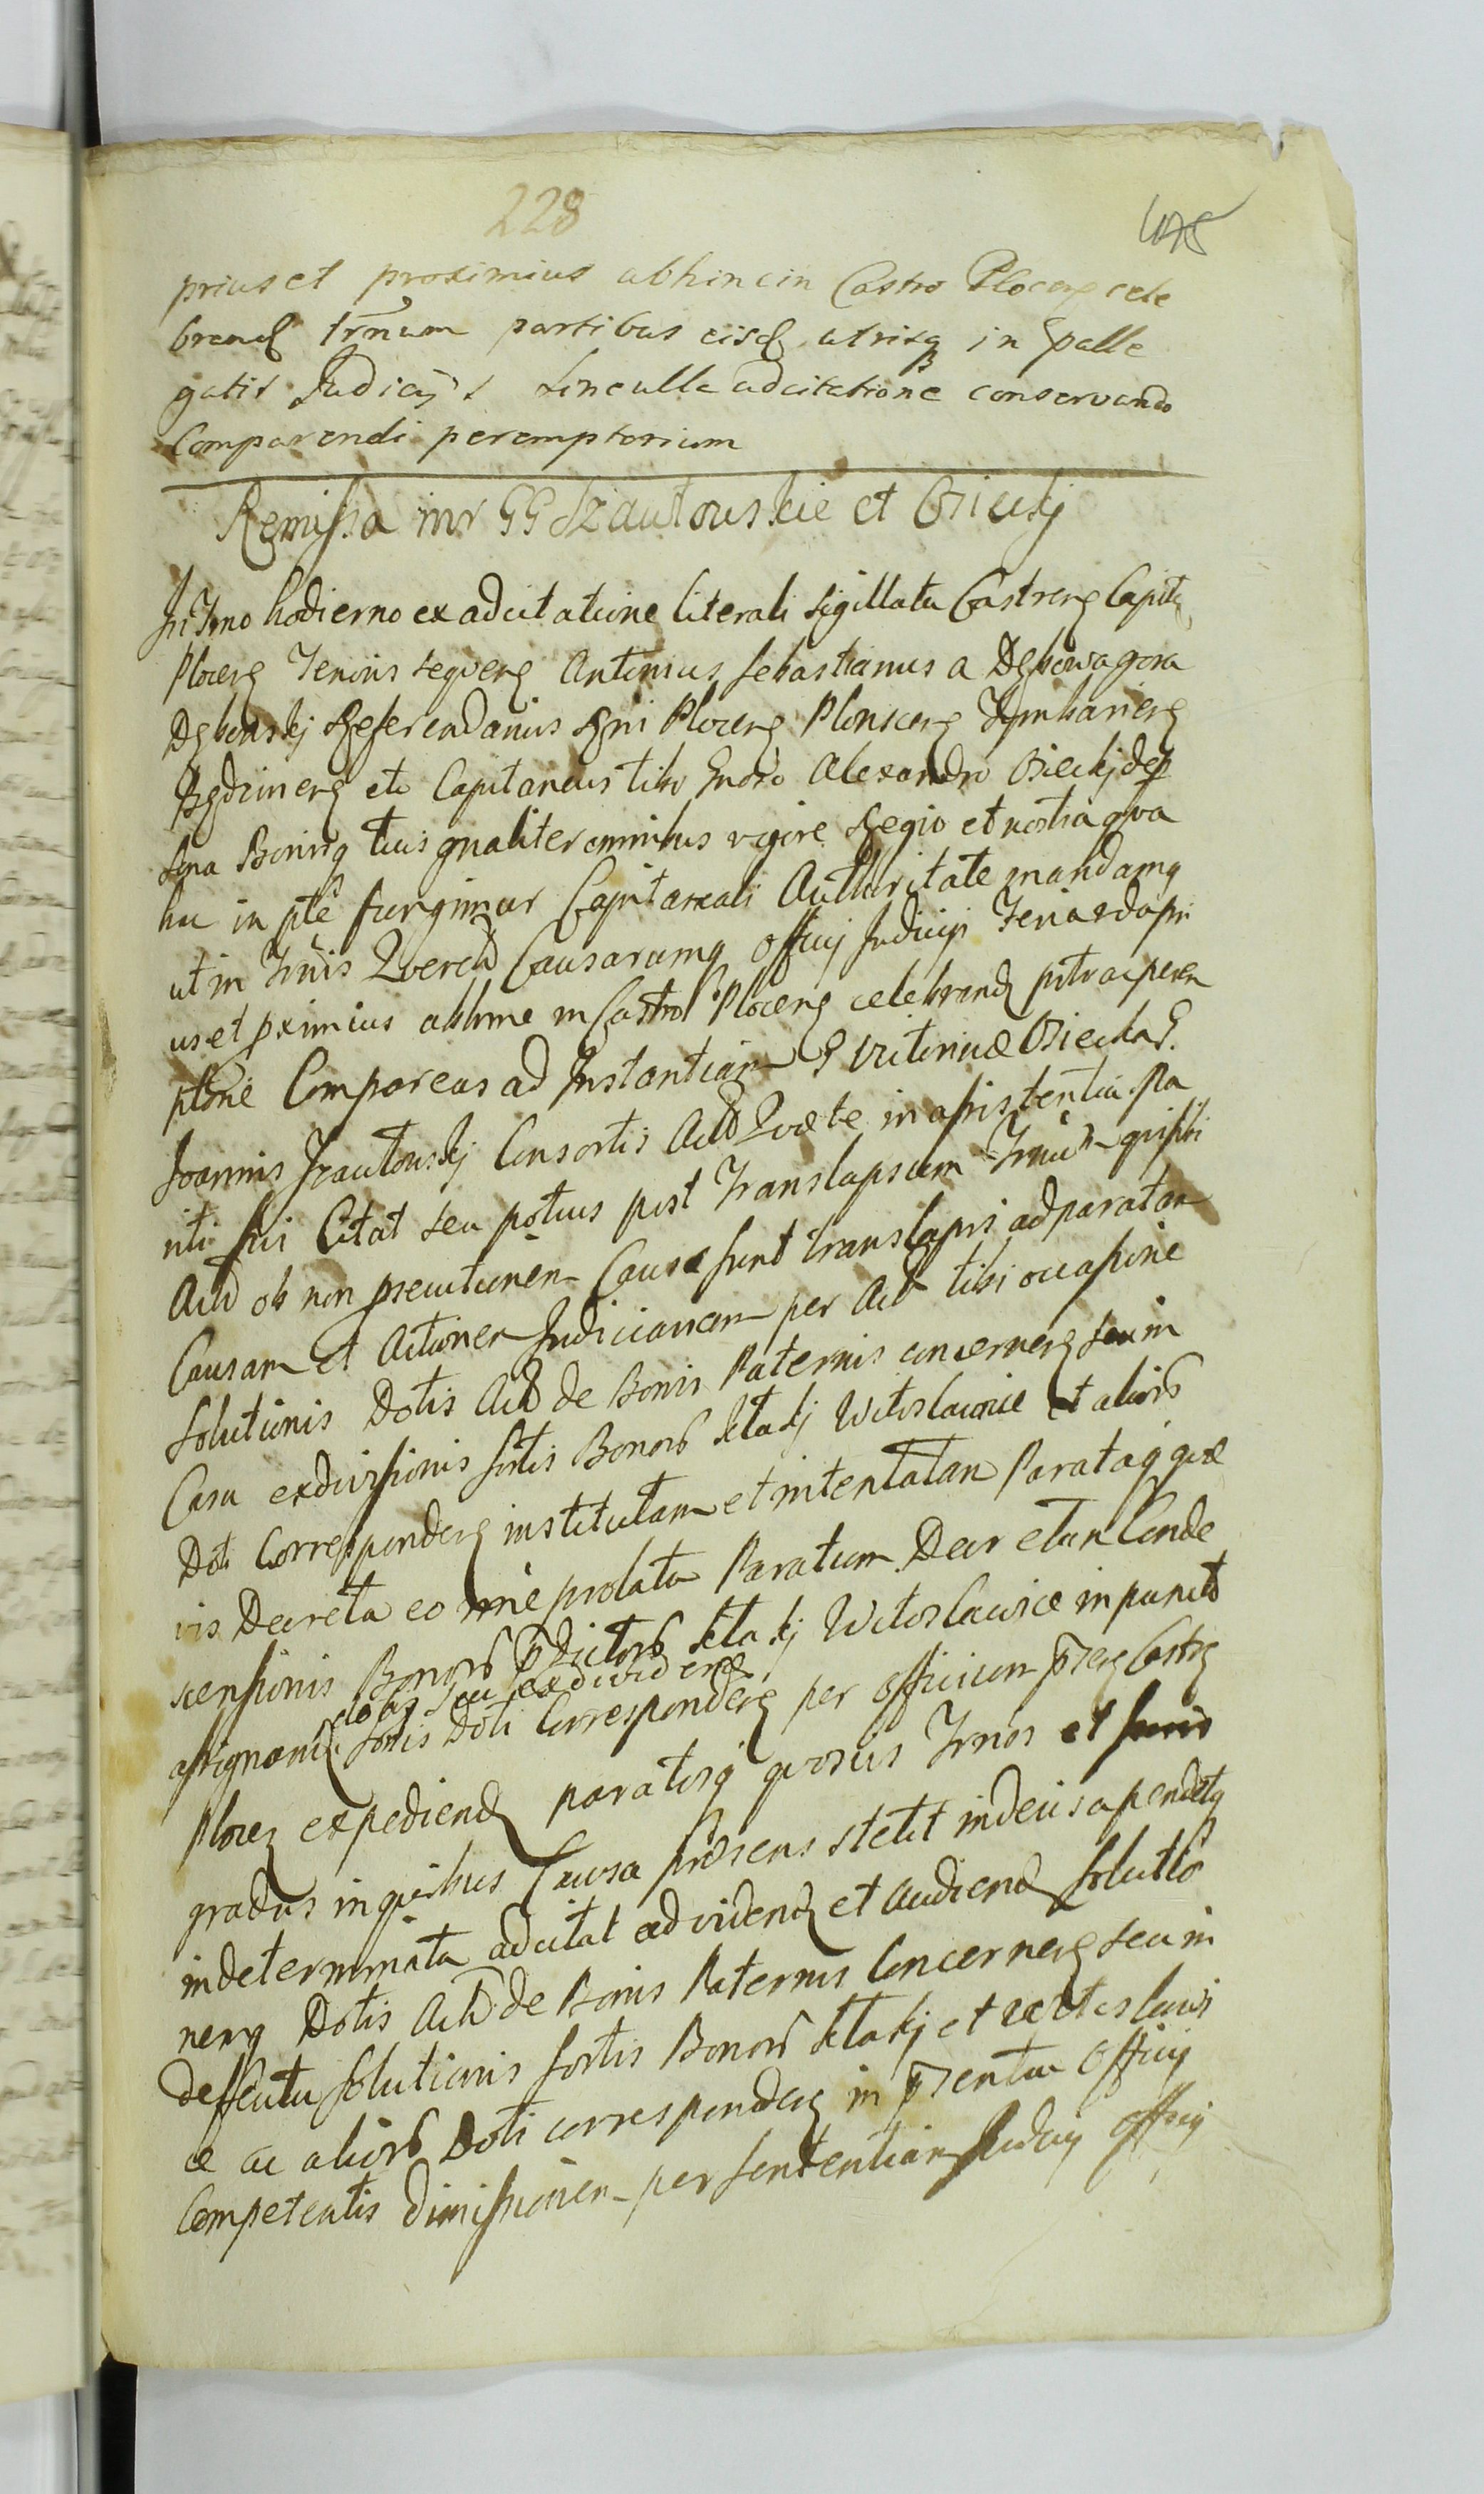 228
prius et proximius abhinc in Castro Plocen cele
brand trmnum partibus eisd utrisq in Palle
gatis Judicijs sine ulla adcitatione conservando
Comparendi peremptorium
Remissa inr GG Szautouskie et Osieckj
In Trmo hodierno ex adcitatione literali sigillata Castren Capita
Plocen Tenoris sequen Antonius Sebastianus a Dębowagora
Dębowskj Referendarius Rgni Plocen Plonscen
etc Capitaneus tibi Gnoso Alexandro Osieckj de
sona Bonisq tuis gnaliter omnibus vigore Regio et nostra qva
hac in pte fungimur Capitaneali Authoritate mandamq
ut in Trmis Qverela Causarumq Officij Judicijs Feria
us et pximius abhinc in Castro Plocen celebrand
ptorie Compareas ad Instantiam G Victoriae Osiecka G.
Joannis Szautouskj Consortis Act Qvae te in assistentia Ma
riti sui Citat seu potius post Translapsum
Act ob non psecutionem Causae sunt translapsi ad paratam
Causam et Actionem Judiciariam per Act tibi occasione
Solutionis Dotis Act de Bonis Paternis concernen seu in
Casu exdivisionis sortis Bonorb Witoslawice et aliorb
Doti Correspponden institutam et intentatam Parataq quae
vis Decreta eo nne prolata Paratum Decretum Conde
scensionis Bonorb Witoslawice in puncto
dotis seu exdividend
assignand sortis Doti Corresponden per Officium psen Castr
Plocen expediend paratosq quosvis Trmos et
gradus in quibus Causa praesens stetit indecisa pendetq
indeterminata adcitat ad vidend et audiend solutio
nenq Dotis Act de Bonis Paternis Concernen seu in
deffectu solutionis sortis Bonorb et Witoslawi
ce ac aliorb Doti corresponden in psentia Officij
Competentis dimissionem per sententiam Judicij Officij